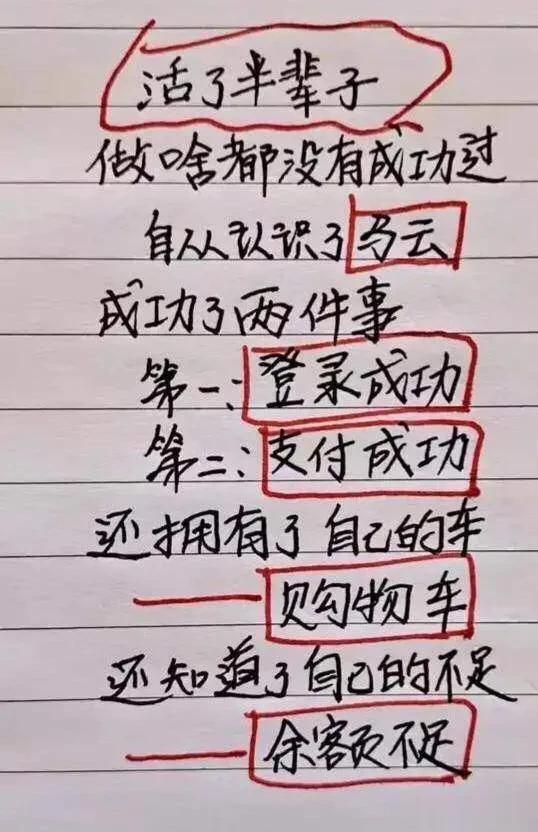 活了半辈子
做啥都没有成功过
自从认识了马云
成功了两件事
第一:登录成功
第二:支付成功
还拥有了自己的车
——购物车
还知道了自己的不足
——余额不足